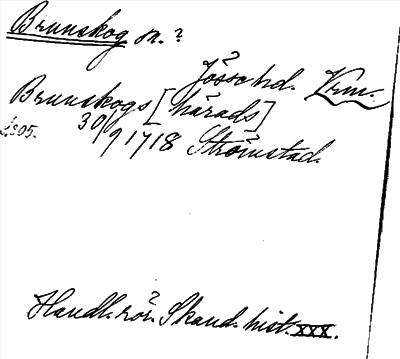 Brunskog sn.?
Jösse hd. Vrm.
Brunskogs [härads]
s. 305. 30/9 1718 Strömstad.
Handl. rör. Skand. hist. XXX.